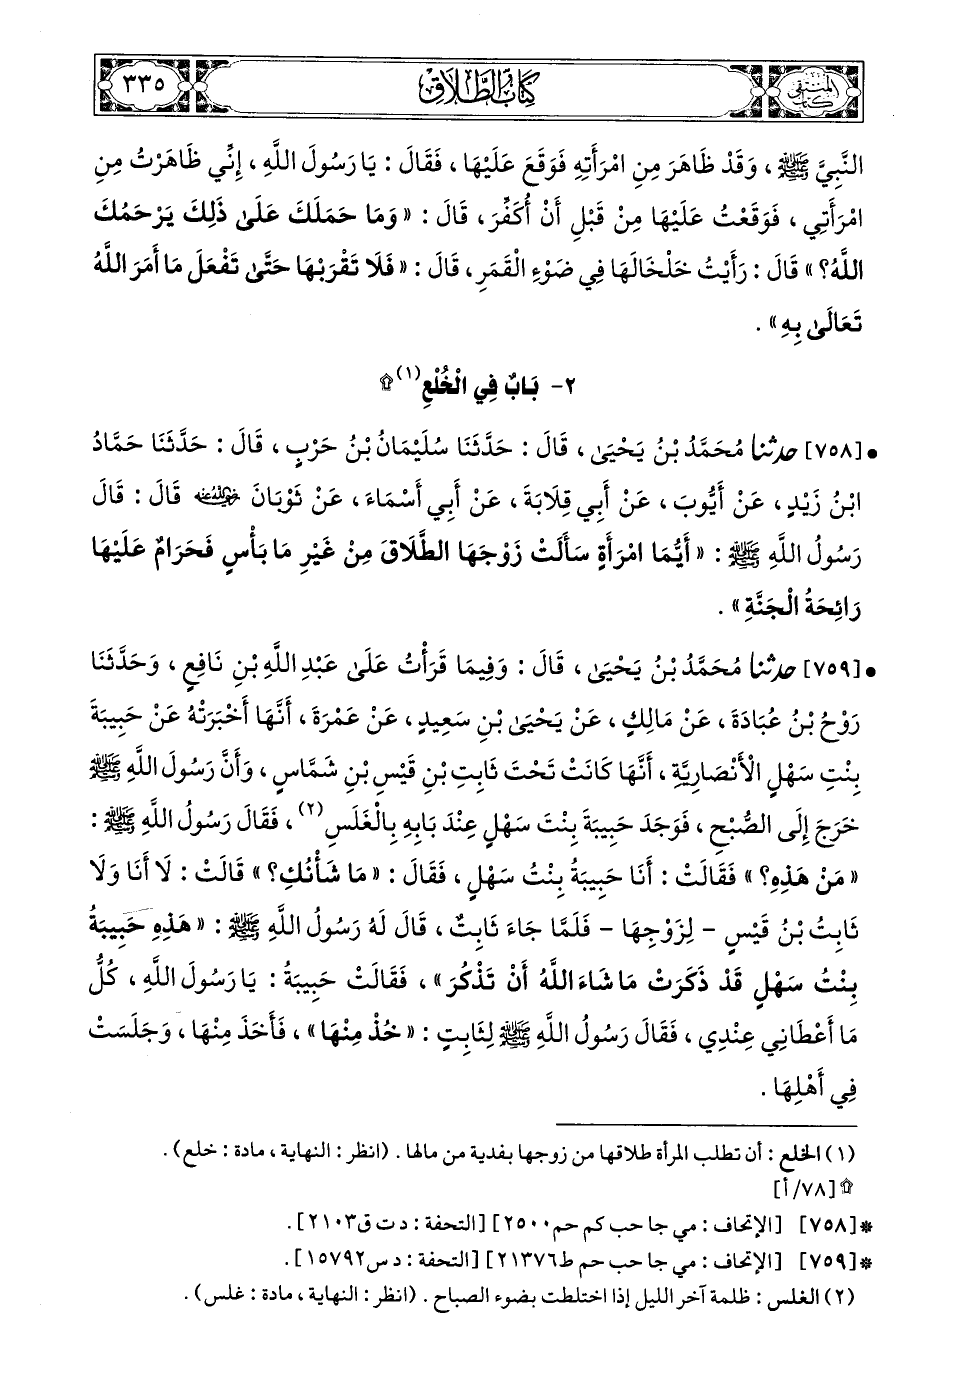 المنتقى كتاب
كِتَابُ الطَّلَاقِ
٣٣٥
النَّبِيَّ ﷺ ، وَقَدْ ظَاهَرَ مِنِ امْرَأَتِهِ فَوَقَعَ عَلَيْهَا ، فَقَالَ : يَا رَسُولَ اللَّهِ ، إِنِّي ظَاهَرْتُ مِنِ
امْرَأَتِي ، فَوَقَعْتُ عَلَيْهَا مِنْ قَبْلِ أَنْ أُكَفِّرَ ، قَالَ : « وَمَا حَمَلَكَ عَلَىٰ ذَلِكَ يَرْحَمُكَ
اللَّهُ؟ » قَالَ : رَأَيْتُ خَلْخَالَهَا فِي ضَوْءِ الْقَمَرِ ، قَالَ : « فَلَا تَقْرَبْهَا حَتَّىٰ تَفْعَلَ مَا أَمَرَ اللَّهُ
تَعَالَىٰ بِهِ » .
٢- بَابٌ فِي الْخُلْعِ(١) ۩
• [٧٥٨] حدثنا مُحَمَّدُ بْنُ يَحْيَىٰ ، قَالَ : حَدَّثَنَا سُلَيْمَانُ بْنُ حَرْبٍ ، قَالَ : حَدَّثَنَا حَمَّادُ
ابْنُ زَيْدٍ ، عَنْ أَيُّوبَ ، عَنْ أَبِي قِلَابَةَ ، عَنْ أَبِي أَسْمَاءَ ، عَنْ ثَوْبَانَ رضي الله عنه قَالَ : قَالَ
رَسُولُ اللَّهِ ﷺ : « أَيُّمَا امْرَأَةٍ سَأَلَتْ زَوْجَهَا الطَّلَاقَ مِنْ غَيْرِ مَا بَأْسٍ فَحَرَامٌ عَلَيْهَا
رَائِحَةُ الْجَنَّةِ » .
• [٧٥٩] حدثنا مُحَمَّدُ بْنُ يَحْيَىٰ ، قَالَ : وَفِيمَا قَرَأْتُ عَلَىٰ عَبْدِ اللَّهِ بْنِ نَافِعٍ ، وَحَدَّثَنَا
رَوْحُ بْنُ عُبَادَةَ ، عَنْ مَالِكٍ ، عَنْ يَحْيَىٰ بْنِ سَعِيدٍ ، عَنْ عَمْرَةَ ، أَنَّهَا أَخْبَرَتْهُ عَنْ حَبِيبَةَ
بِنْتِ سَهْلٍ الْأَنْصَارِيَّةِ ، أَنَّهَا كَانَتْ تَحْتَ ثَابِتِ بْنِ قَيْسِ بْنِ شَمَّاسٍ ، وَأَنَّ رَسُولَ اللَّهِ ﷺ
خَرَجَ إِلَى الصُّبْحِ ، فَوَجَدَ حَبِيبَةَ بِنْتَ سَهْلٍ عِنْدَ بَابِهِ بِالْغَلَسِ(٢) ، فَقَالَ رَسُولُ اللَّهِ ﷺ :
« مَنْ هَذِهِ؟ » فَقَالَتْ : أَنَا حَبِيبَةُ بِنْتُ سَهْلٍ ، فَقَالَ : « مَا شَأْنُكِ؟ » قَالَتْ : لَا أَنَا وَلَا
ثَابِتُ بْنُ قَيْسٍ - لِزَوْجِهَا - فَلَمَّا جَاءَ ثَابِتٌ ، قَالَ لَهُ رَسُولُ اللَّهِ ﷺ : « هَذِهِ حَبِيبَةُ
بِنْتُ سَهْلٍ قَدْ ذَكَرَتْ مَا شَاءَ اللَّهُ أَنْ تَذْكُرَ » ، فَقَالَتْ حَبِيبَةُ : يَا رَسُولَ اللَّهِ ، كُلُّ
مَا أَعْطَانِي عِنْدِي ، فَقَالَ رَسُولُ اللَّهِ ﷺ لِثَابِتٍ : « خُذْ مِنْهَا » ، فَأَخَذَ مِنْهَا ، وَجَلَسَتْ
فِي أَهْلِهَا .
(١) الخلع : أن تطلب المرأة طلاقها من زوجها بفدية من مالها . (انظر : النهاية ، مادة : خلع) .
۩ [٧٨/ أ]
* [٧٥٨] [الإتحاف : مي جا حب كم حم ٢٥٠٠] [التحفة : د ت ق ٢١٠٣] .
* [٧٥٩] [الإتحاف : مي جا حب حم ط ٢١٣٧٦] [التحفة : د س ١٥٧٩٢] .
(٢) الغلس : ظلمة آخر الليل إذا اختلطت بضوء الصباح . (انظر : النهاية ، مادة : غلس) .